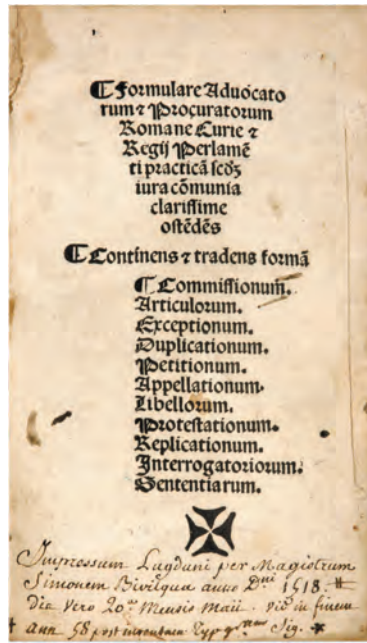 ¶ Formulare Aduocato
rum ⁊ Procuratorum
Romane Curie ⁊
Regij Perlamē
ti practicā scd'z
iura cōmunia
clarissime
ostēdēs
¶ Continens ⁊ tradens formā
¶ Commissionum.
Articulorum.
Exceptionum.
Duplicationum.
Petitionum.
Appellationum.
Libellorum.
Protestationum.
Replicationum.
Interrogatoriorum.
Sententiarum.
Impressum Lugduni per Magistrum
Simonem Bivilqua anno Dni 1518.
die vero 20a Mensis Maii. vide in finem
ann 58 post inventam Typ